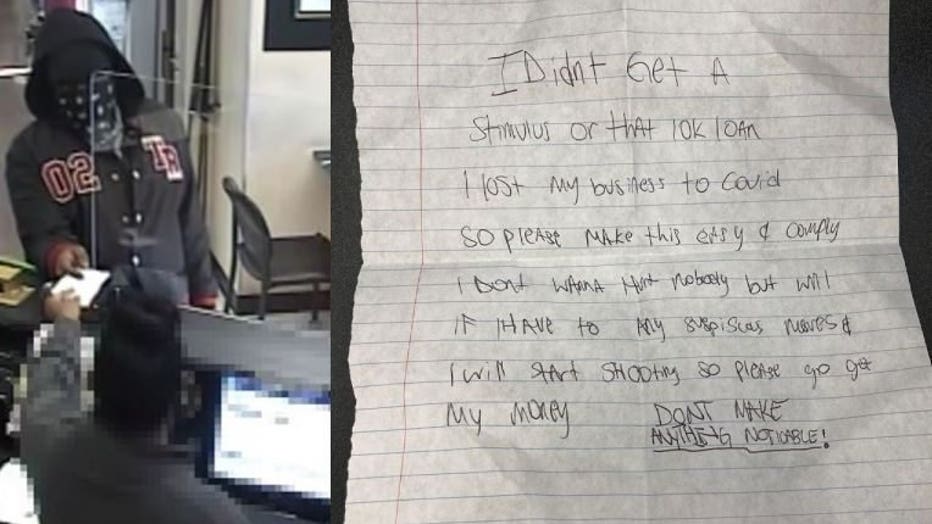 02 TR
I Didnt Get A
Stimulus or that 10K loan
I lost My business to Covid
So please Make this easy & comply
I Dont WANNA Hurt nobody but will
IF I HAVE to Any suspiscus moves &
I will Start Shooting so please go get
My Money DONT MAKE
ANYTHING NOTICABLE!